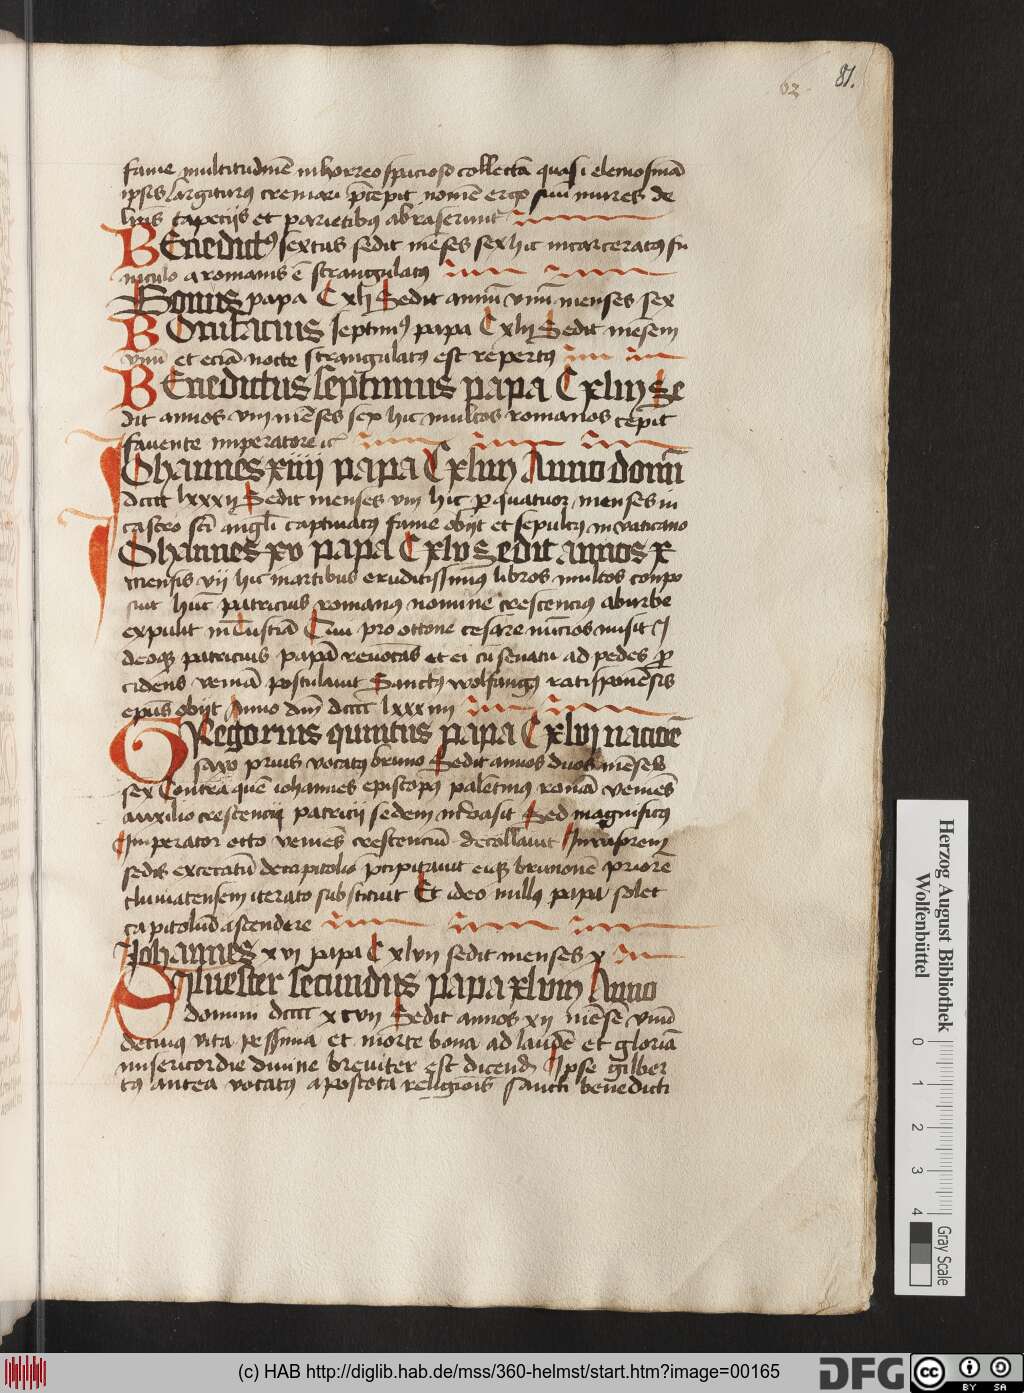 62 81.
fame multitudinē in horreo spacioso collectā quasi elemosinā
ipsis largiturus cremari p̄cepit nomē ergo sui mures de
lectis tapetijs et parietibꝰ abraserunt
BEnedictꝰ sextus sedit mēses sex hic incarceratꝰ fu
niculo a romanis ē strangulatꝰ
Bonus papa Cxlj Sedit annū vnū menses sex
BOnifacius septimꝰ papa Cxlij Sedit mēsem
vnū et eciā nocte strangulatꝰ est repertꝰ
BEnedictus septimus papa Cxliij Se
dit annos viij mēses sex hic multos romanos cepit
favente imperatore
IOhannes xiiij papa Cxliiij Anno domi
dcccc lxxxij Sedit menses viij hic p quatuor menses in
castro scī angli captiuatꝰ fame obijt et sepultꝰ in vaticano
IOhannes xv papa Cxlv Sedit annos x
mensis vij hic in artibus eruditissimꝰ libros multos conpo
suit hūc patricius romanus nomine crescencius ab urbe
expulit in Tusciā Cui pro ottone cesare nūcios misit I
deoqꝫ patricius papā reuocās et ei cū senatu ad pedes p
cidens veniā postulauit Sanctꝰ wolfangꝰ ratisponēsis
epūs obijt Anno dnī dcccc lxxxiiij
GRegorius quintus papa Cxlvj nacōe
saxo prius vocatꝰ bruno Sedit annos duos mēses
sex Contra quē iohannes episcopꝰ palētinus romā veniēs
auxilio crescencij patricij sedem invasit Sed magnificꝰ
Imperator otto veniēs crescenciū decollauit Invasorem
sedis excecatū de capitolio p̄cipitauit eūqꝫ brunonē priorē
cluniatensem iterato substituit Et ideo nullꝰ papa solet
capitoliū ascendere
Johannes xvj papa Cxlvij sedit menses x
SIluester secundus papa xlviij Anno
domini dcccc xcvij Sedit annos xij mēse vnū
de cuiꝰ vita pessima et morte bona ad laudē et gloriā
misericordie diuine breuiter est dicend Ipse gilber
tꝰ antea vocatꝰ apostota religionis sancti benedicti
Herzog August Bibliothek
Wolfenbüttel
0 1 2 3 4
Gray Scale
(c) HAB http://diglib.hab.de/mss/360-helmst/start.htm?image=00165
DFG
cc BY SA